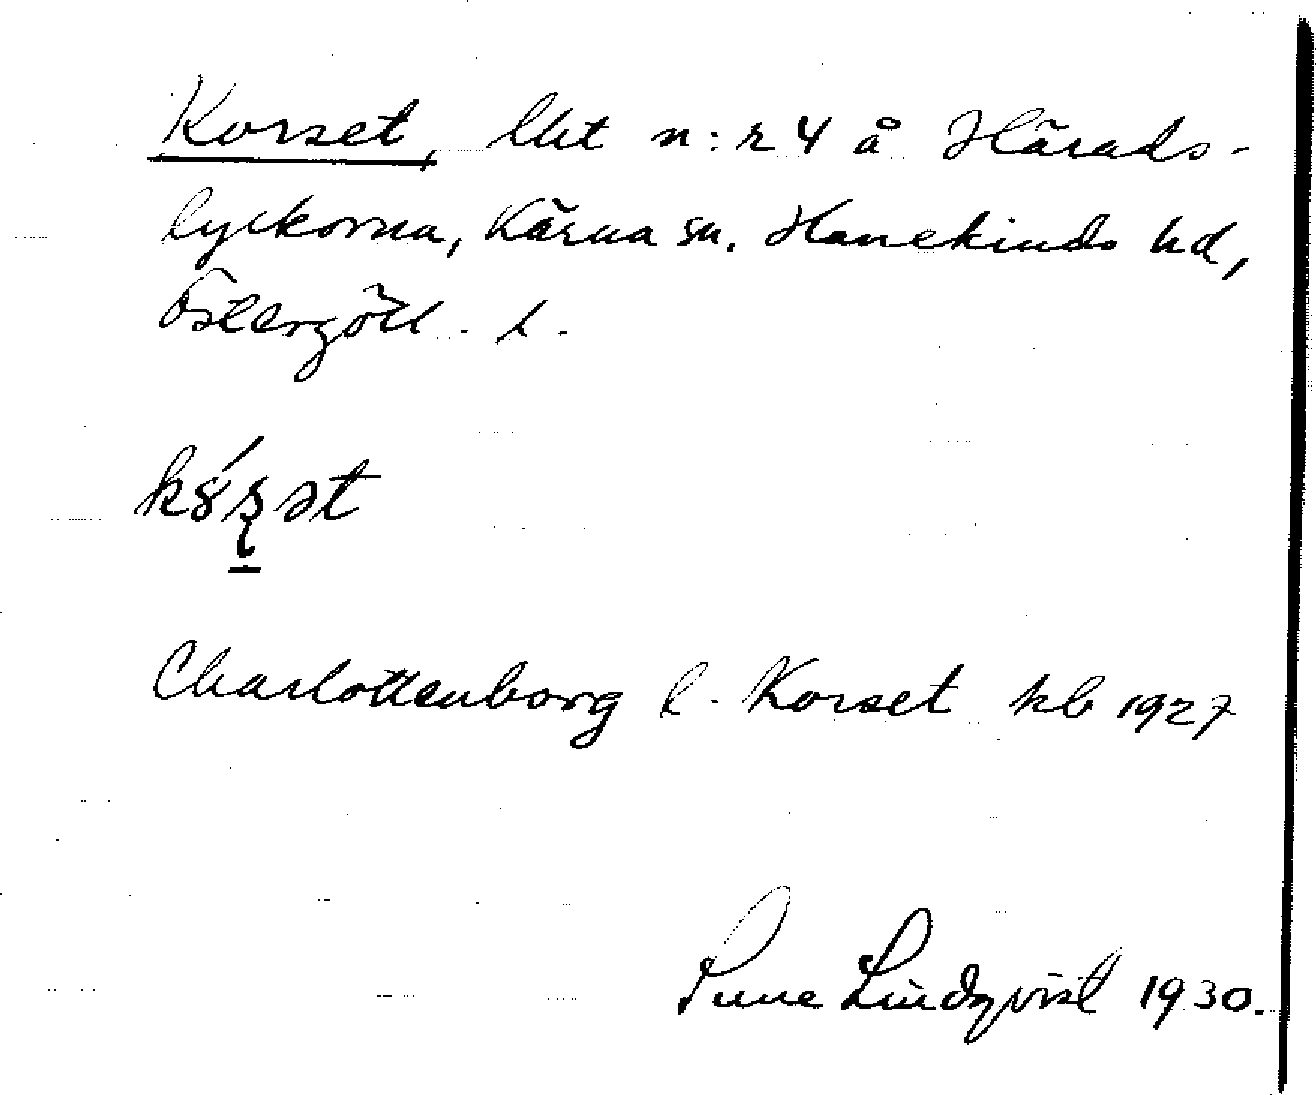 Korset, lht n:r 4 å Härads-
lyckorna, Kärna sn. Hanekinds hd,
Östergötl. l.
kȣ́ʂət
Charlottenborg l. Korset kb 1927
Sune Lindqvist 1930.